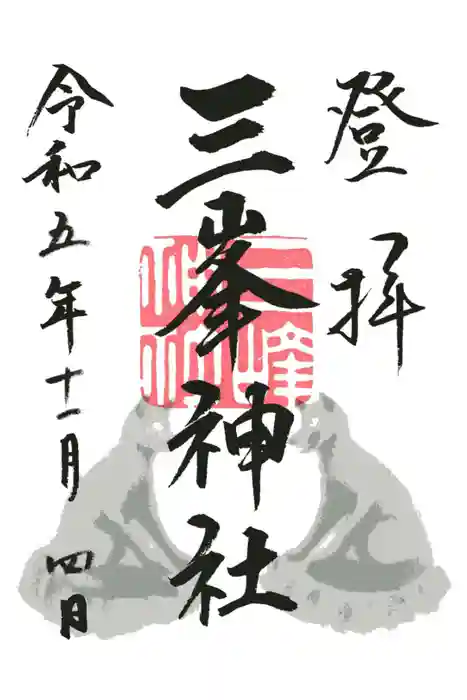 登拝
三峯神社
令和五年十一月四日